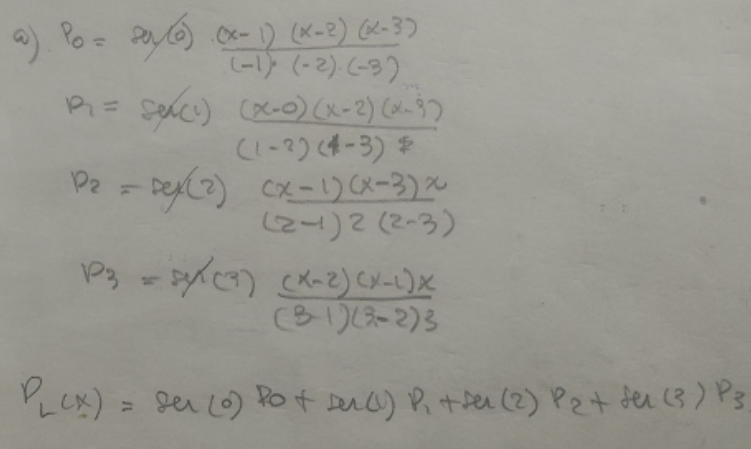 a) P0 = sen(0) (x-1) (x-2) (x-3)
(-1) · (-2) · (-3)
P1 = sen(1) (x-0) (x-2) (x-3)
(1-2) (1-3)
P2 = sen(2) (x-1) (x-3) x
(2-1) 2 (2-3)
P3 = sen(3) (x-2) (x-1) x
(3-1) (3-2) 3
PL(x) = sen(0) P0 + sen(1) P1 + sen(2) P2 + sen(3) P3